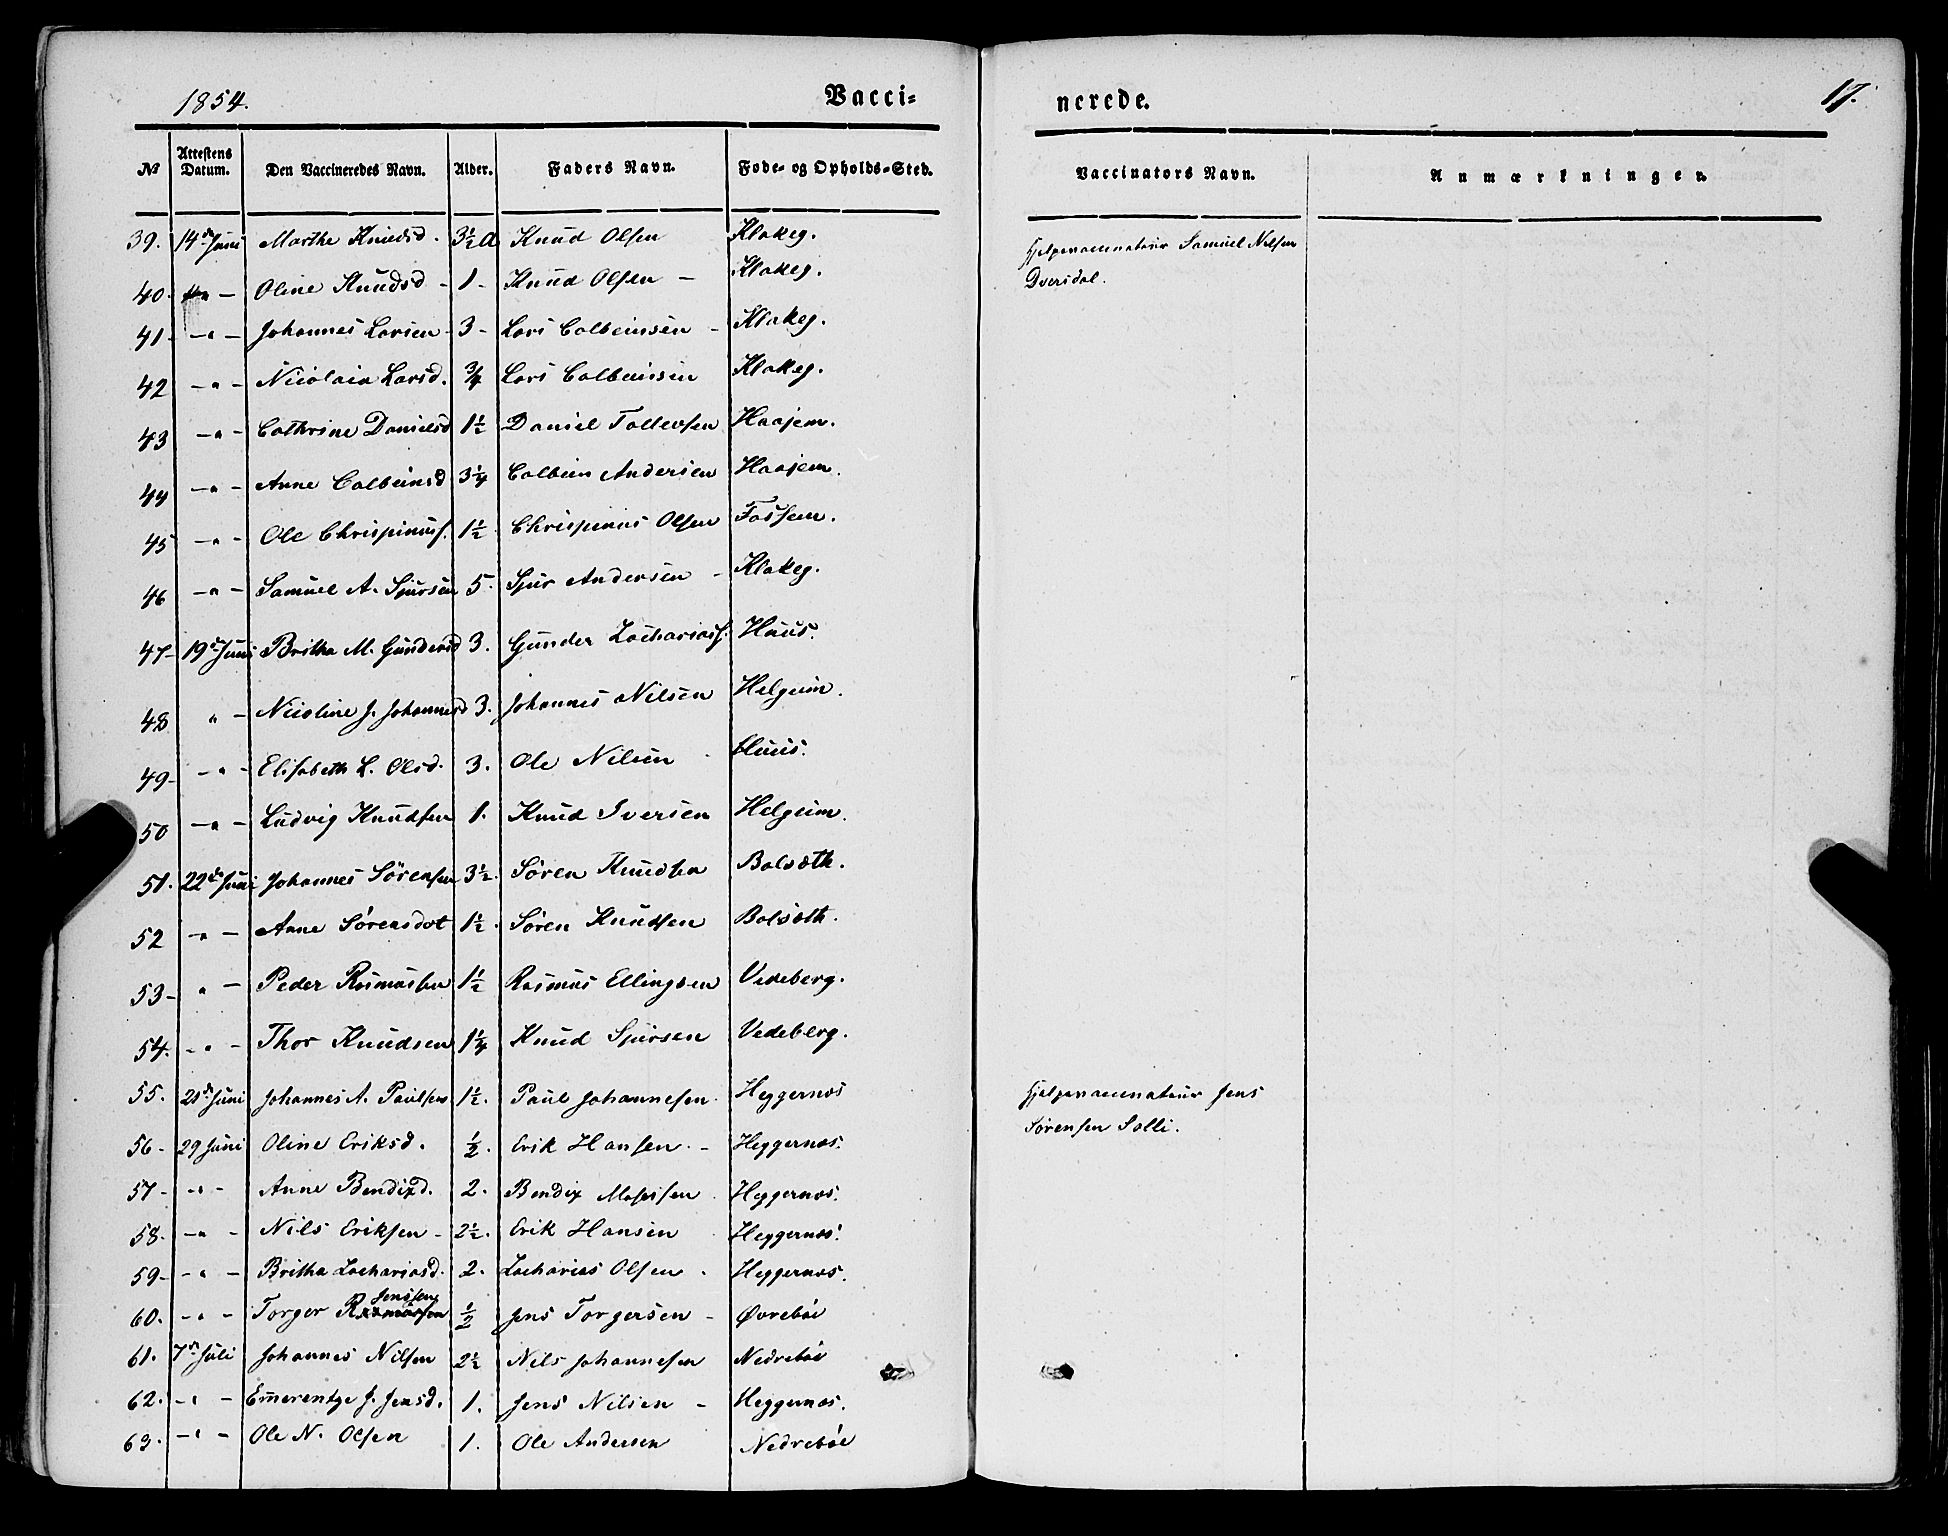 1854.
Vacci-
nerede.
17.
No
Attestens Datum.
Den Vaccineredes Navn.
Alder.
Faders Navn.
Føde- og Opholds-Sted.
Vaccinators Navn.
Anmærkninger.
39. 14de Juni Marthe Knudsd. 3½ A Knud Olsen Klakeg. Hjelpevaccinateur Samuel Nilsen
40. " – Oline Knudsd – 1 – Knud Olsen – Klakeg. Dversdal.
41 – " – Johannes Larsen – 3 – Lars Colbeinsen – Klakeg.
42 – " – Nicolaia Larsd. ¾ Lars Colbeinsen Klakeg.
43 – " – Cathrine Danielsd 1½ Daniel Tollevsen Haajem.
44 – " – Anne Colbeinsd 3¼ Colbein Andersen Haajem.
45 – " – Ole Chrispinusf. 1½ Chrispinus Olsen Fossem.
46 – " – Samuel A. Sjursen 5. Sjur Andersen – Klakeg.
47 – 19de Juni Britha M. Gundersd 3. Gunder Zachariasf. Huus.
48 " – Nicoline J. Johannesd 3. Johannes Nilsen Helgeim.
49 – – " – Elisabeth L. Olsd. 3. Ole Nilsen Huus.
50 – " – Ludvig Knudsen 1. Knud Iversen Helgeim.
51. 22de Juni Johannes Sørensen 3½. Søren Knudsen Bolsæth.
52 – " – Anne Sørensdot 1½. Søren Knudsen Bolsæth.
53 – " – Peder Rasmussen 1½ Rasmus Ellingsen Vedeberg.
54. – " – Thor Knudsen 1¼ Knud Sjursen Vedeberg.
55. 21de Juni Johannes A. Paulsen 1½. Paul Johannesen. Heggernæs Hjelpevaccinateur Jens
56 – 29 Juni Oline Eriksd. ½. Erik Hansen. – Heggernæs. Sørensen Solli.
57 – – " – Anne Bendixd. 2. Bendix Mosessen Heggernæs.
58. – " – Nils Eriksen – 2½. Erik Hansen Heggernæs.
59 – – " – Britha Zachariasd. 2. Zacharias Olsen. Heggernæs.
60. – " – Torger Rasmussen Jenssen ½ Jens Torgersen – Øvrebøe
61. 7de Juli Johannes Nilsen 2½ Nils Johannesen Nedrebøe
62. – " – Emerentze J. Jensd. 1. Jens Nilsen – Heggernæs.
63. – " – Ole N. Olsen 1. Ole Andersen Nedrebøe